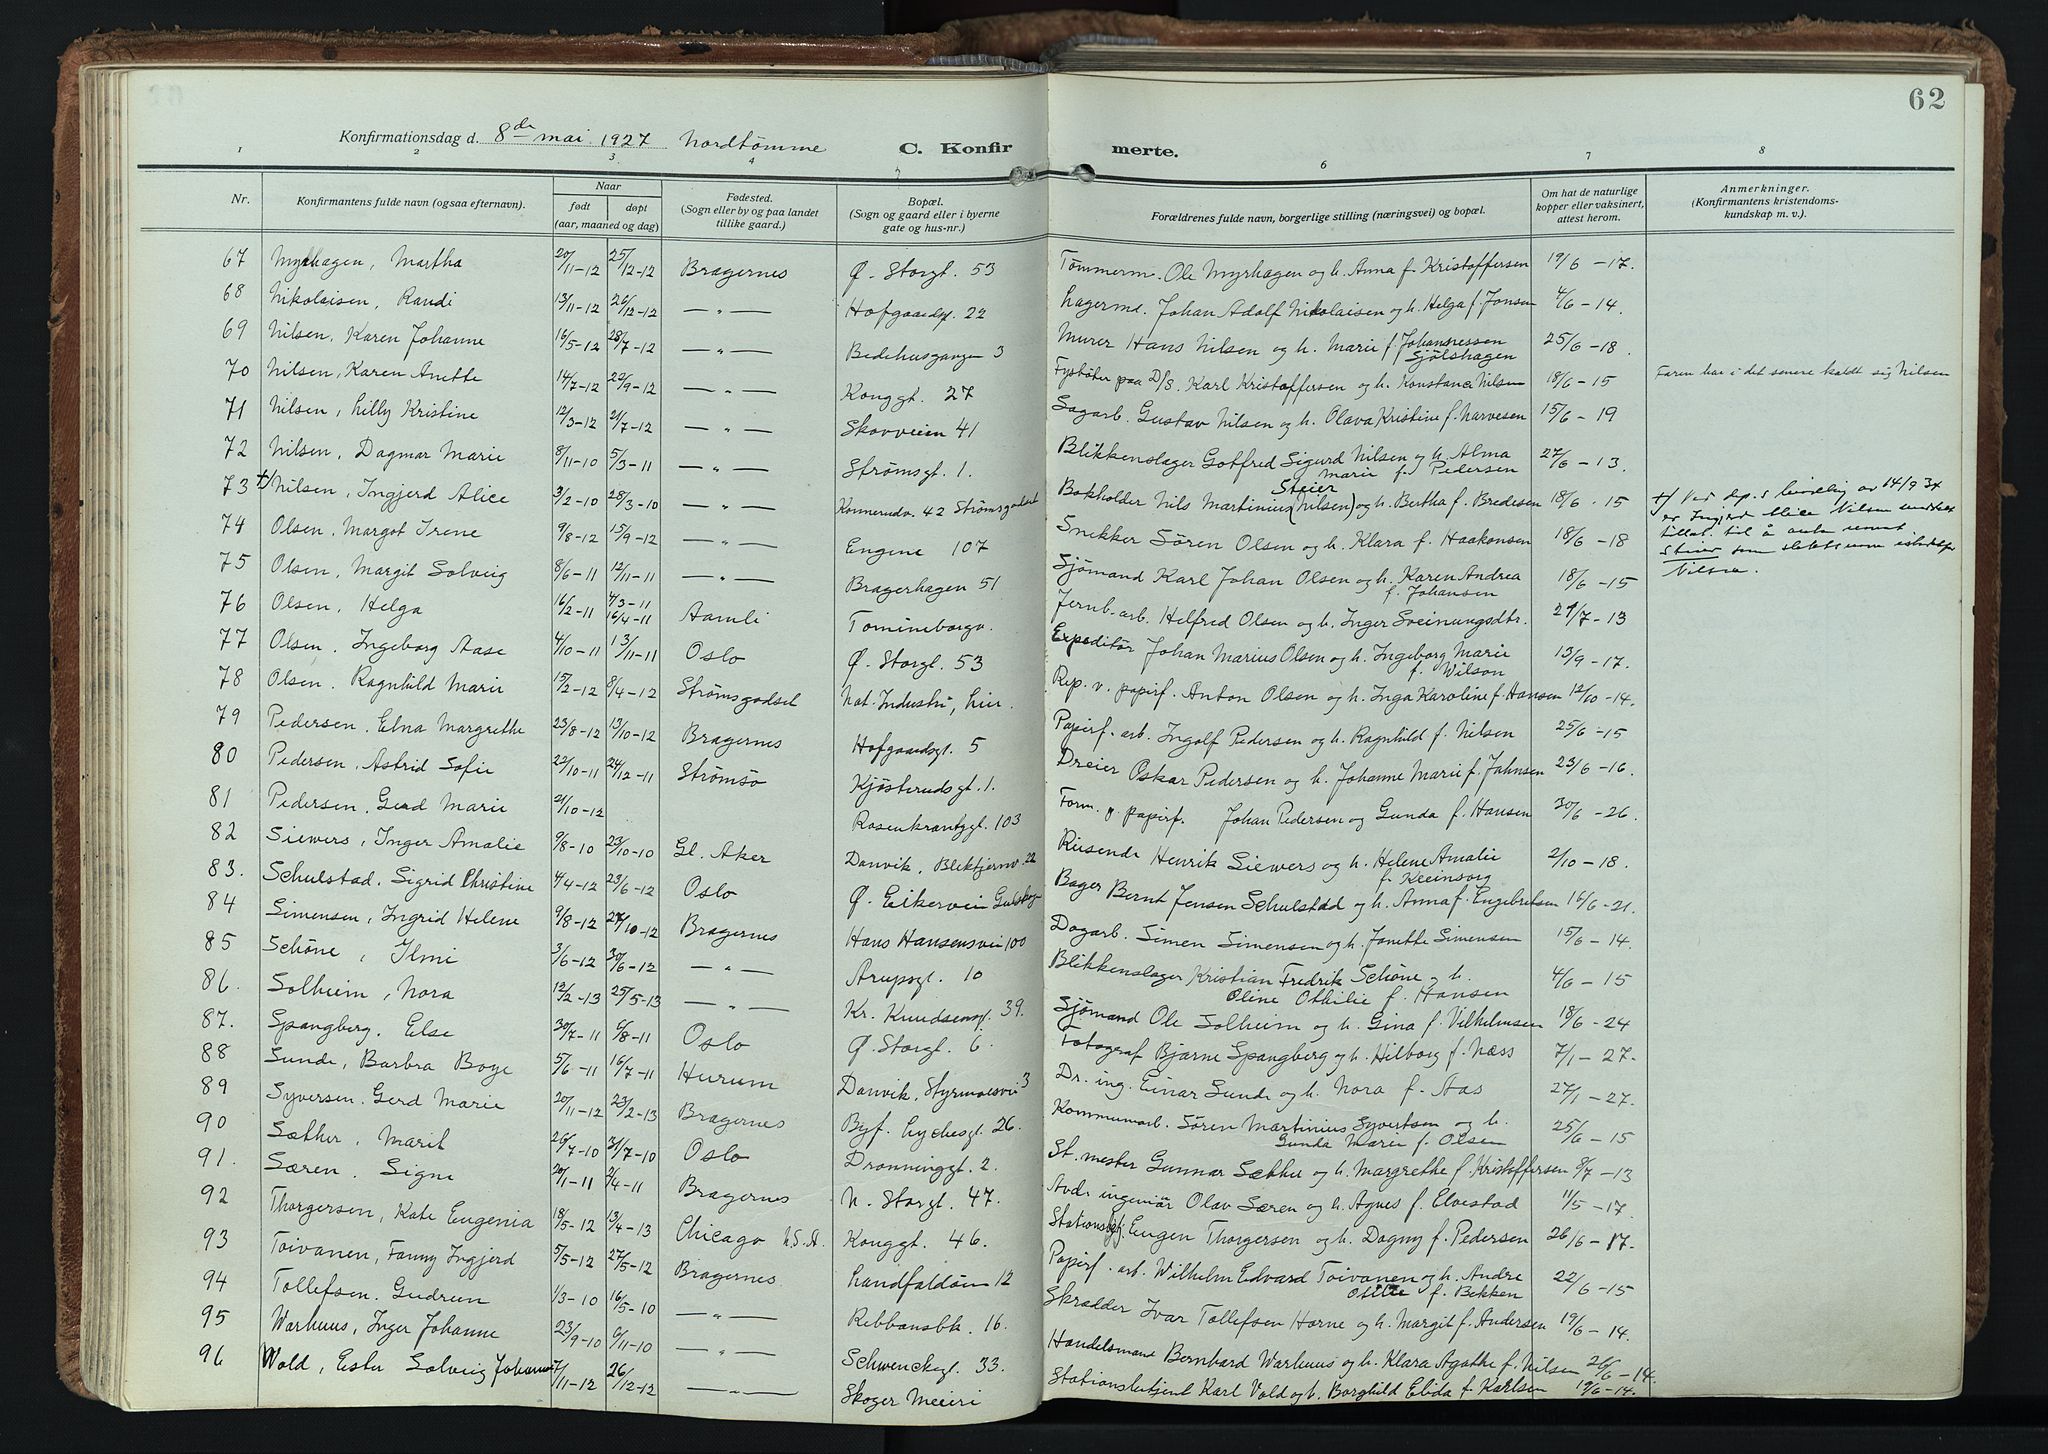 62
Konfirmationsdag d. 8de mai 1927 Nordtømme
C. Konfirmerte.
1 2 3 4 6 7 8
Nr. Konfirmantens fulde navn (ogsaa efternavn). Naar født døpt (aar, maaned og dag) Fødested. (Sogn eller by og paa landet tillike gaard.) Bopæl. (Sogn og gaard eller i byerne gate og hus-nr.) Forældrenes fulde navn, borgerlige stilling (næringsvei) og bopæl. Om hat de naturlige kopper eller vaksinert, attest herom. Anmerkninger. (Konfirmantens kristendomskundskap m. v.)
67 Myrhagen, Martha 20/11-12 25/12-12 Bragernes Ø. Storgt. 53 Tømmerm. Ole Myrhagen og h. Anna f. Kristoffersen 19/6-17.
68 Nikolaisen, Randi 13/11-12 26/12-12 —„— Hofgaardsgt. 22 Lagermd. Johan Adolf Nikolaisen og h. Helga f. Jonsen 4/6-14.
69 Nilsen, Karen Johanne 16/5-12 28/7-12 —„— Bedehusgangen 3 Murer Hans Nilsen og h. Marie f. Johannessen Sjølshagen 25/6-18.
70 Nilsen, Karen Anette 14/7-12 22/9-12 —„— Konggt. 27 Fyrbøter paa D/S. Karl Kristoffersen og h. Konstance Nilsen 18/6-15 Faren har i det senere kaldt sig Nilsen
71 Nilsen, Lilly Kristine 12/3-12 21/7-12 —„— Skovveien 41 Sagarb. Gustav Nilsen og h. Olava Kristine f. Narvesen 15/6-19
72 Nilsen, Dagmar Marie 8/11-10 5/3-11 —„— Strømsgt. 1. Blikkenslager Gotfred Sigurd Nilsen og h. Alma Marie f. Pedersen 27/6-13.
73 +) Nilsen, Ingjerd Alice 3/2-10 28/3-10 —„— Konnerudv. 42 Strømsgodset Bokholder Nils Martinius Steier (Nilsen) og h. Bertha f. Bredesen 18/6-15 +) Ved dp.s bevilling av 14/9 34 er Ingjerd Alice Nilsen meddelt tillat. til å anta navnet Steier som slektsnavn istedetfor Nilsen.
74 Olsen, Margot Irene 9/8-12 15/9-12 —„— Engene 107 Snekker Søren Olsen og h. Klara f. Haakonsen 18/6-18
75 Olsen, Margit Solveig 8/6-11 12/11-11 —„— Bragerhagen 51 Sjømand Karl Johan Olsen og h. Karen Andrea f. Johansen 18/6-15
76 Olsen, Helga 16/2-11 4/3-11 16/4-11 Aamli Tomineborgv. Jernb.-arb. Helfred Olsen og h. Inger Sveinungsdtr. 29/7-13
77 Olsen, Ingeborg Aase 4/10-11 13/11-11 Oslo Ø. Storgt. 53 Expeditør Johan Marius Olsen og h. Ingeborg Marie f. Wilson 13/9-17.
78 Olsen, Ragnhild Marie 15/2-12 8/4-12 Strømsgodset Nat. Industri, Lier. Rep. v. papirf. Anton Olsen og h. Inga Karoline f. Hansen 12/10-14.
79 Pedersen, Elna Margrethe 23/8-12 13/10-12 Bragernes Hofgaardsgt. 5 Papirf.-arb. Ingolf Pedersen og h. Ragnhild f. Nilsen 25/6-15
80 Pedersen, Astrid Sofie 22/10-11 24/12-11 Strømsø Kjøsterudsgt. 1. Dreier Oskar Pedersen og h. Johanne Marie f. Jahnsen 23/6-16.
81 Pedersen, Gerd Marie 21/10-12 Rosenkrantzgt. 103 Form. p papirf. Johan Pedersen og Gunda f. Hansen 30/6-26.
82 Siewers, Inger Amalie 9/8-10 23/10-10 Gl. Aker Danvik, Blektjernv. 22 Reisende Henrik Siewers og h. Helene Amalie f. Kleinsorg 2/10-18.
83. Schulstad, Sigrid Christine 4/4-12 23/6-12 Oslo Ø. Eikervei Gulskog Bager Bernt Jensen Schulstad og h. Anna f. Engebretsen 16/6-21.
84 Simensen, Ingrid Helene 9/8-12 27/10-12 Bragernes Hans Hansensvei 100 Dagarb. Simen Simensen og h. Janette Simensen 15/6-14.
85 Schöne, Ilmi 3/6-12 30/6-12 —„— Arupsgt. 10 Blikkenslager Kristian Fredrik Schöne og h. Oline Othilie f. Hansen 4/6-15
86. Solheim, Nora 12/2-13 25/5-13 —„— Kr. Knudsensgt. 39. Sjømand Ole Solheim og h. Gina f. Vilhelmsen 18/6-24
87. Spangberg, Else 30/7-11 6/8-11 Oslo Ø. Storgt. 6. Fotograf Bjarne Spangberg og h. Hilborg f. Næss 7/1-27.
88 Sunde, Barbra Boye 5/6-11 16/7-11 Hurum Danvik, Styrmoesvei 3 Dr. ing. Einar Sunde og h. Nora f. Aas 27/1-27.
89 Syversen, Gerd Marie 20/11-12 23/2-13 Bragernes Byf. Lychesgt. 26. Kommunarb. Søren Martinius Syvertsen og h. Gunda Marie f. Olsen 25/6-15
90 Sæther, Marit 26/7-10 31/7-10 Oslo Dronninggt. 2. St.mester Gunnar Sæther og h. Margrethe f. Kristoffersen 8/7-13
91. Særen, Signe 20/1-11 2/4-11 Bragernes N. Storgt. 47. Avd. ingeniør Olav Særen og h. Agnes f. Elvestad 11/5-17.
92 Thorgersen, Kate Eugenia 18/5-12 13/4-13 Chicago U.S.A. Konggt. 46. Stationsbetj. Eugen Thorgersen og h. Dagny f. Pedersen 26/6-17.
93 Toivanen, Fanny Ingjerd 5/5-12 27/5-12 Bragernes. Landfaldøen 12 Papirf.-arb. Wilhelm Edvard Toivanen og h. Andre Otilie f. Bekken 22/6-15
94 Tollefsen, Gudrun 1/3-10 16/5-10 —„— Ribbansbk. 16. Skrædder Ivar Tollefsen Horne og h. Margit f. Andersen 19/6-14.
95 Warhuus, Inger Johanne 23/9-10 6/11-10 —„— Schwenckegt. 33. Handelsmand Bernhard Warhuus og h. Klara Agathe f. Nilsen 26/6-14.
96 Wold, Ester Solveig Johanne 7/11-12 26/12-12 —„— Skoger Meieri Stationsbetjent Karl Vold og h. Borghild Elida f. Karlsen 19/6-14.